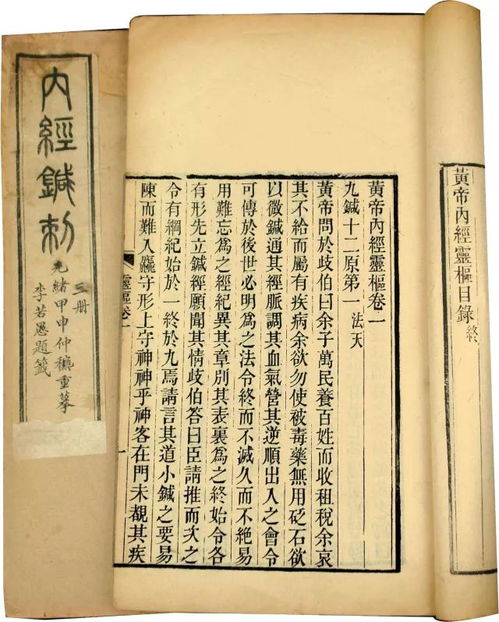 黃帝內經靈樞目錄終
黃帝內經靈樞卷一
九鍼十二原第一 法天
黃帝問於歧伯曰余子萬民養百姓而收租稅余哀
其不給而屬有疾病余欲勿使被毒藥無用砭石欲
以微鍼通其經脈調其血氣營其逆順出入之會令
可傳於後世必明爲之法令終而不滅久而不絕易
用難忘爲之經紀異其章別其表裏爲之終始令各
有形先立鍼經願聞其情歧伯答曰臣請推而次之
令有綱紀始於一終於九焉請言其道小鍼之要易
陳而難入麤守形上守神神乎神客在門未覩其疾
靈樞卷一
內經鍼刺
三册
光緒甲申仲穐重摹
李若愚題籤